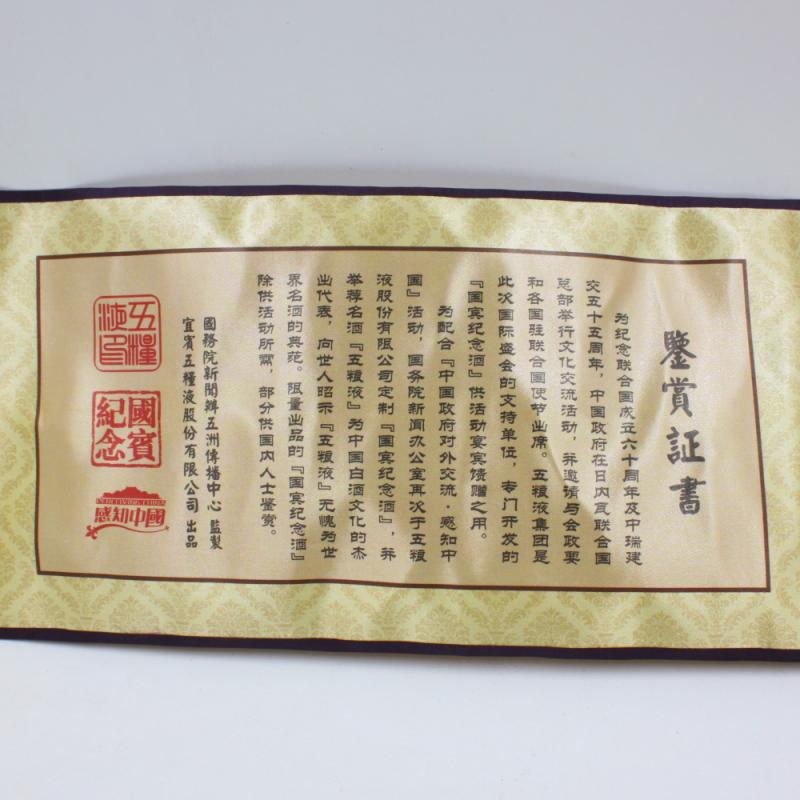 鑒賞証書
为纪念联合国成立六十周年及中瑞建
交五十五周年，中国政府在日内瓦联合国
总部举行文化交流活动，并邀请与会政要
和各国驻联合国使节出席。五粮液集团是
此次国际盛会的支持单位，专门开发的
『国宾纪念酒』供活动宴宾馈赠之用。
为配合『中国政府对外交流·感知中
国』活动，国务院新闻办公室再次于五粮
液股份有限公司定制『国宾纪念酒』，并
举荐名酒『五粮液』为中国白酒文化的杰
出代表，向世人昭示『五粮液』无愧为世
界名酒的典范。限量出品的『国宾纪念酒』
除供活动所需，部分供国内人士鉴赏。
國務院新聞辦五洲傳播中心 監製
宜賓五糧液股份有限公司 出品
五糧液印
國賓紀念
EXPERIENCING CHINA
感知中國